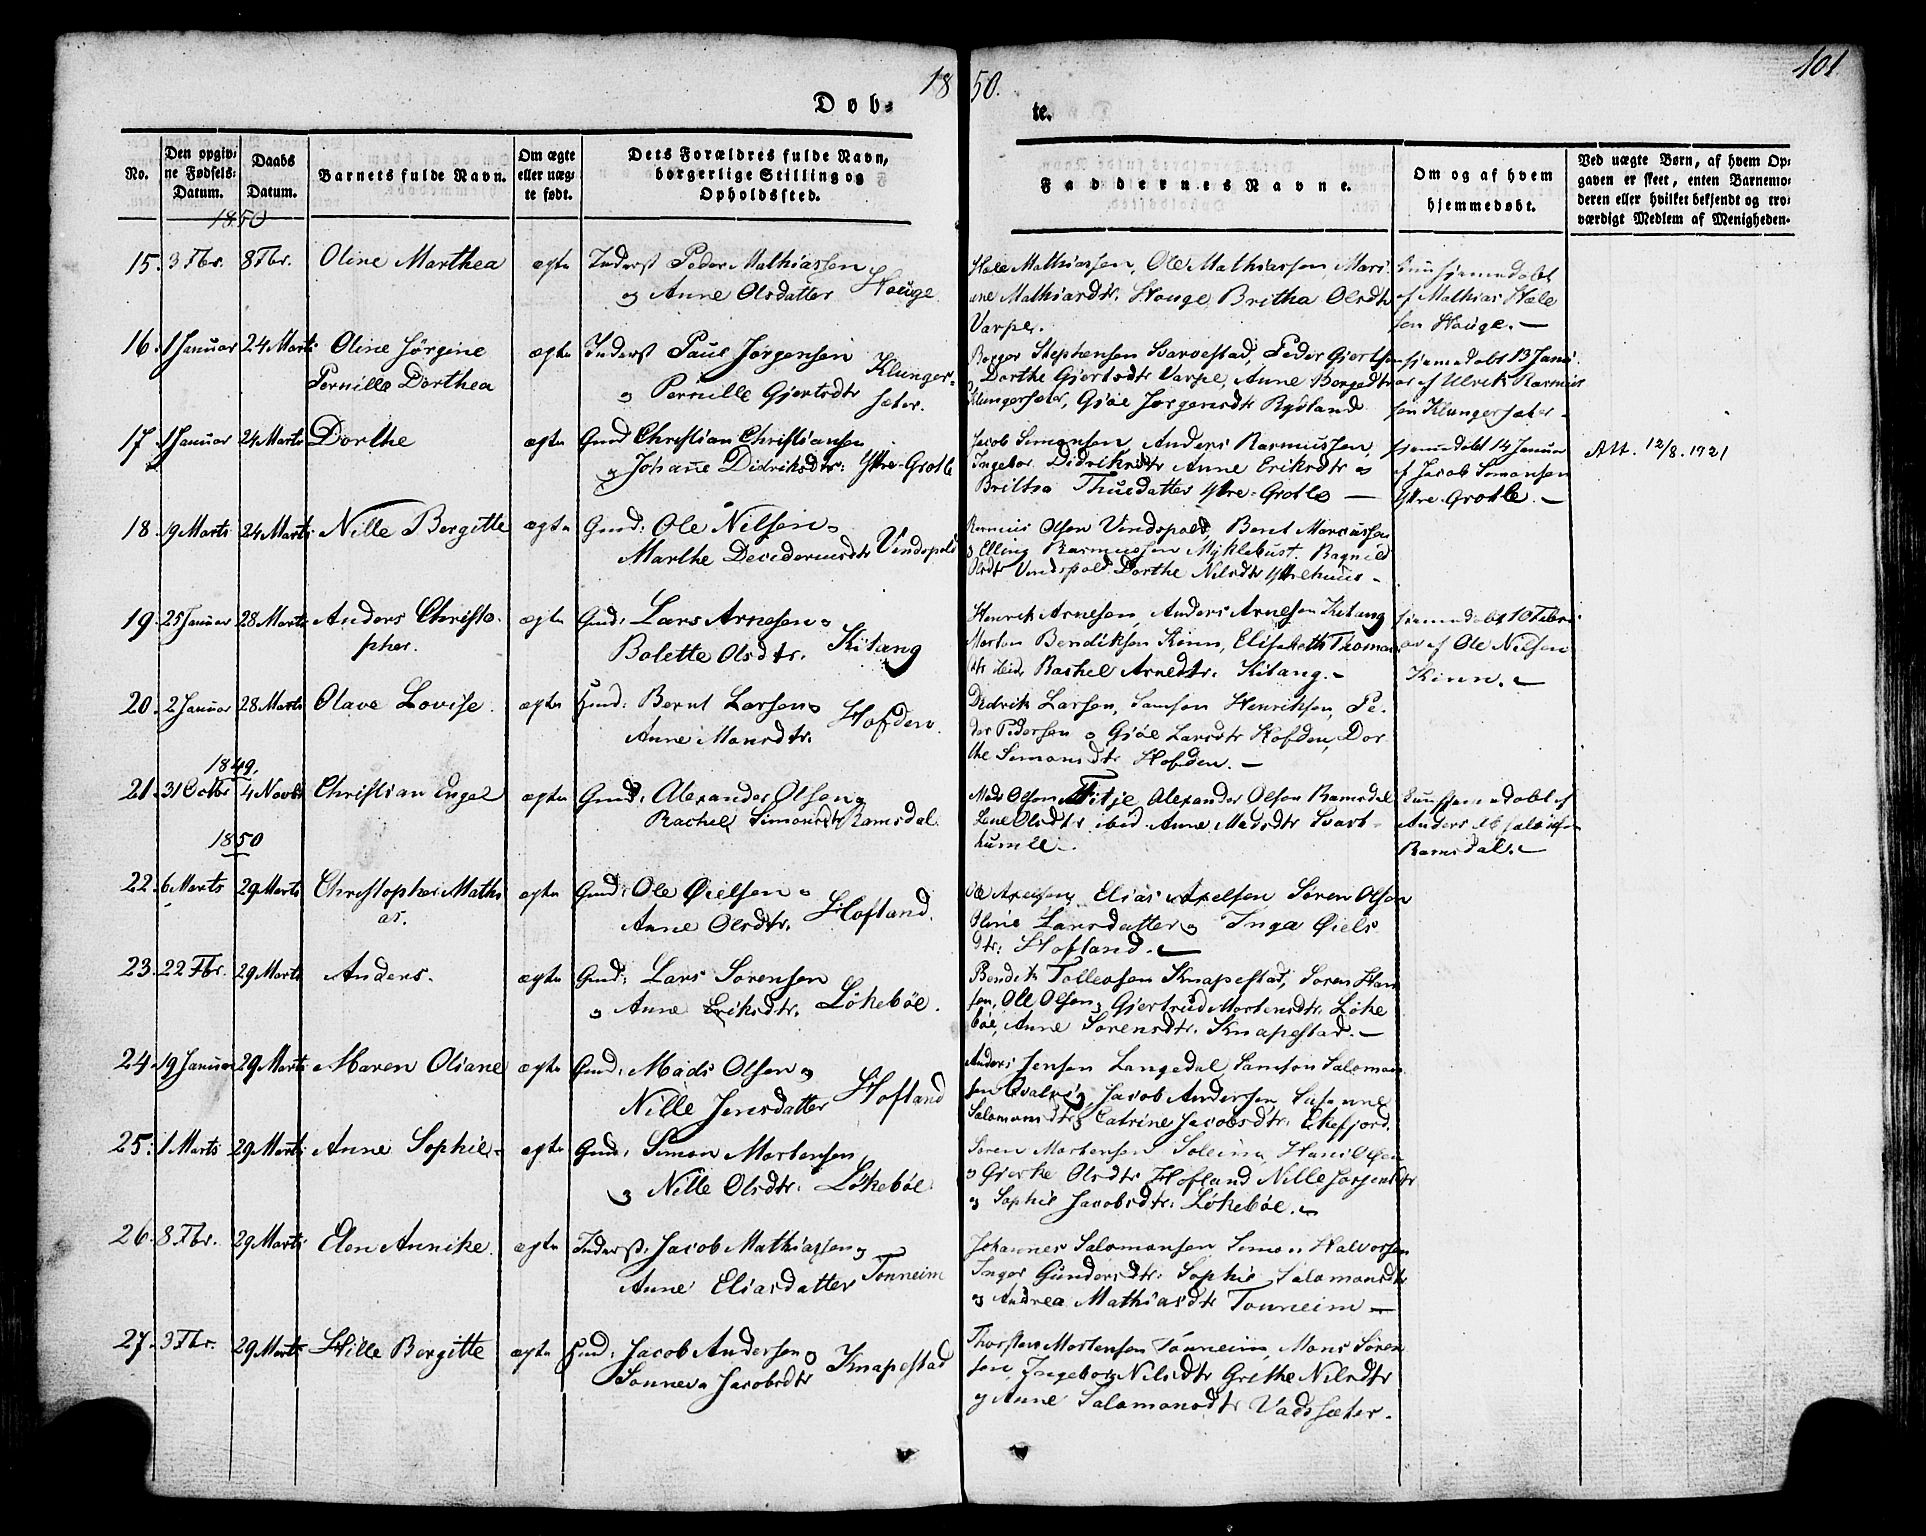 1850.
101.
Døb-
te.
No.
Den opgiv-
ne Fødsels-
Datum.
Daabs
Datum.
Barnets fulde Navn.
Om ægte
eller uæg-
te født.
Dets Forældres fulde Navn,
borgerlige Stilling og
Opholdssted.
Faddernes Navne.
Om og af hvem
hjemmedøbt.
Ved uægte Børn, af hvem Op-
gaven er skeet, enten Barnemo-
deren eller hvilket bekjendt og tro-
værdigt Medlem af Menigheden.
1850
15. 3 Fbr. 8 Fbr. Oline Marthea ægte Inderst Peder Mathiassen
og Anne Olsdatter Houge.
Hole Mathiassen, Ole Mathiassen, Mari
ane Mathiasdtr. Houge, Britha Olsdtr
Varpe.
hjemmedøbt
af Mathias Hole
sen Houge.
16. 1 Januar 24 Marts Oline Jørgine
Pernille Dorthea
ægte Inderst Paul Jørgensen
og Pernille Gjertsdtr
Klunger-
sæter.
Borger Stephensen Barvestad, Peder Gjertsen
Dorthe Gjertsdtr Varpe, Anne Borgedtr
Klungersæter, Gjøe Jørgensdtr Rydland
hjemmedøbt 13 Janu-
ar af Ulrik Rasmus
sen Klungersæter
17. 1 Januar 24 Marts Dorthe ægte Gmd Christian Christiansen
og Johanne Didriksdtr: Yttre-Grotle
Jacob Simonsen, Anders Rasmussen,
Ingebor Didriksdtr Anne Eriksdtr og
Britha Thuedatter Yttre-Grotle
hjemmedøbt 14 Januar
af Jacob Simonsen
Yttre-Grotle.
Att. 12/8. 1921
18. 9 Marts 24 Marts Nille Bergitte ægte Gmd: Ole Nilsen og
Marthe Decideriusdtr Vindspold
Rasmus Olsen Vindspold, Bent Marcussen
og Elling Rasmussen Myklebust. Ragnild
Olsdtr Vindspold. Dorthe Nilsdtr Yttrehuus
19. 25 Januar 28 Marts Anders Christo-
pher.
ægte Gmd: Lars Arnesen og
Bolette Olsdtr. Kitang
Henrik Arnesen, Anders Arnesen Kitang
Morten Bendiksen Kinn, Elisabeth Thomas
dtr ibid. Rachel Arnedtr. Kitang.
hjemmedøbt 10 Febru-
ar af Ole Nilsen
Kinn.
20. 2 Januar 28 Marts Olave Lovise. ægte Hmd: Bernt Larsen og
Anne Monsdtr. Hofden.
Didrik Larsen, Samson Henriksen, Pe-
der Pedersen og Gjøe Larsdtr Hofden, Dor
the Simonsdtr Hofden.
1849.
21. 31 Octbr 4 Novbr Christian Engel ægte Gmd: Alexander Olsen og
Rachel Simonsdtr Ramsdal.
Mads Olsen Fitje Alexander Olsen Ramsdal
Lene Olsdtr ibid Anne Madsdtr Svart-
humle.
hjemmedøbt af
Anders
Ramsdal.
1850
22. 6 Marts 29 Marts Christopher Mathi
as.
ægte Gmd: Ole Øielsen og
Anne Olsdtr. Hofland.
Elias Axelsen, Søren Olsen
Larsdatter og Inga Øiels
dtr: Hofland.
23. 22 Fbr. 29 Marts Anders. ægte Gmd: Lars Sørensen
og Anne Eriksdtr. Løkebøe.
Bendik Tollevsen Knapestad, Søren Han
sen, Ole Olsen, Gjertrud Mortensdtr. Løke
bøe, Anne Sørensdtr. Knapestad.
24. 19 Januar 29 Marts Maren Oliane ægte Gmd: Mads Olsen og
Nille Jensdatter Hofland
Anders Jensen Langedal, Samson Salomon
sen Qvalvig, Jacob Andersen, Susanne
Salomonsdtr, Catrine Jacobsdtr. Ekefjord.
25. 1 Marts 29 Marts Anne Sophie. ægte Gmd: Simon Mortensen
og Nille Olsdtr. Løkebøe.
Søren Mortensen Soleim, Hans Olsen
og Gjerke Olsdtr Hofland Nille Jørgensdtr
og Sophie Jacobsdtr. Løkebøe.
26. 8 Fbr. 29 Marts Elen Annike. ægte Inderst: Jacob Mathiassen og
Anne Eliasdatter Tonneim
Johannes Salomonsen Simon Halvorsen
Inger Gundersdtr: Sophie Salomonsdtr
og Andrea Mathiasdtr Tonneim
27. 3 Fbr. 29 Marts Hille Bergitte ægte Hmd: Jacob Andersen og
Sonneva Jacobsdtr Knapestad
Thorsten Mortensen Tonneim, Mons Søren
sen, Ingebor Nilsdtr Grethe Nilsdtr
og Anne Salomonsdtr Vadsæter.